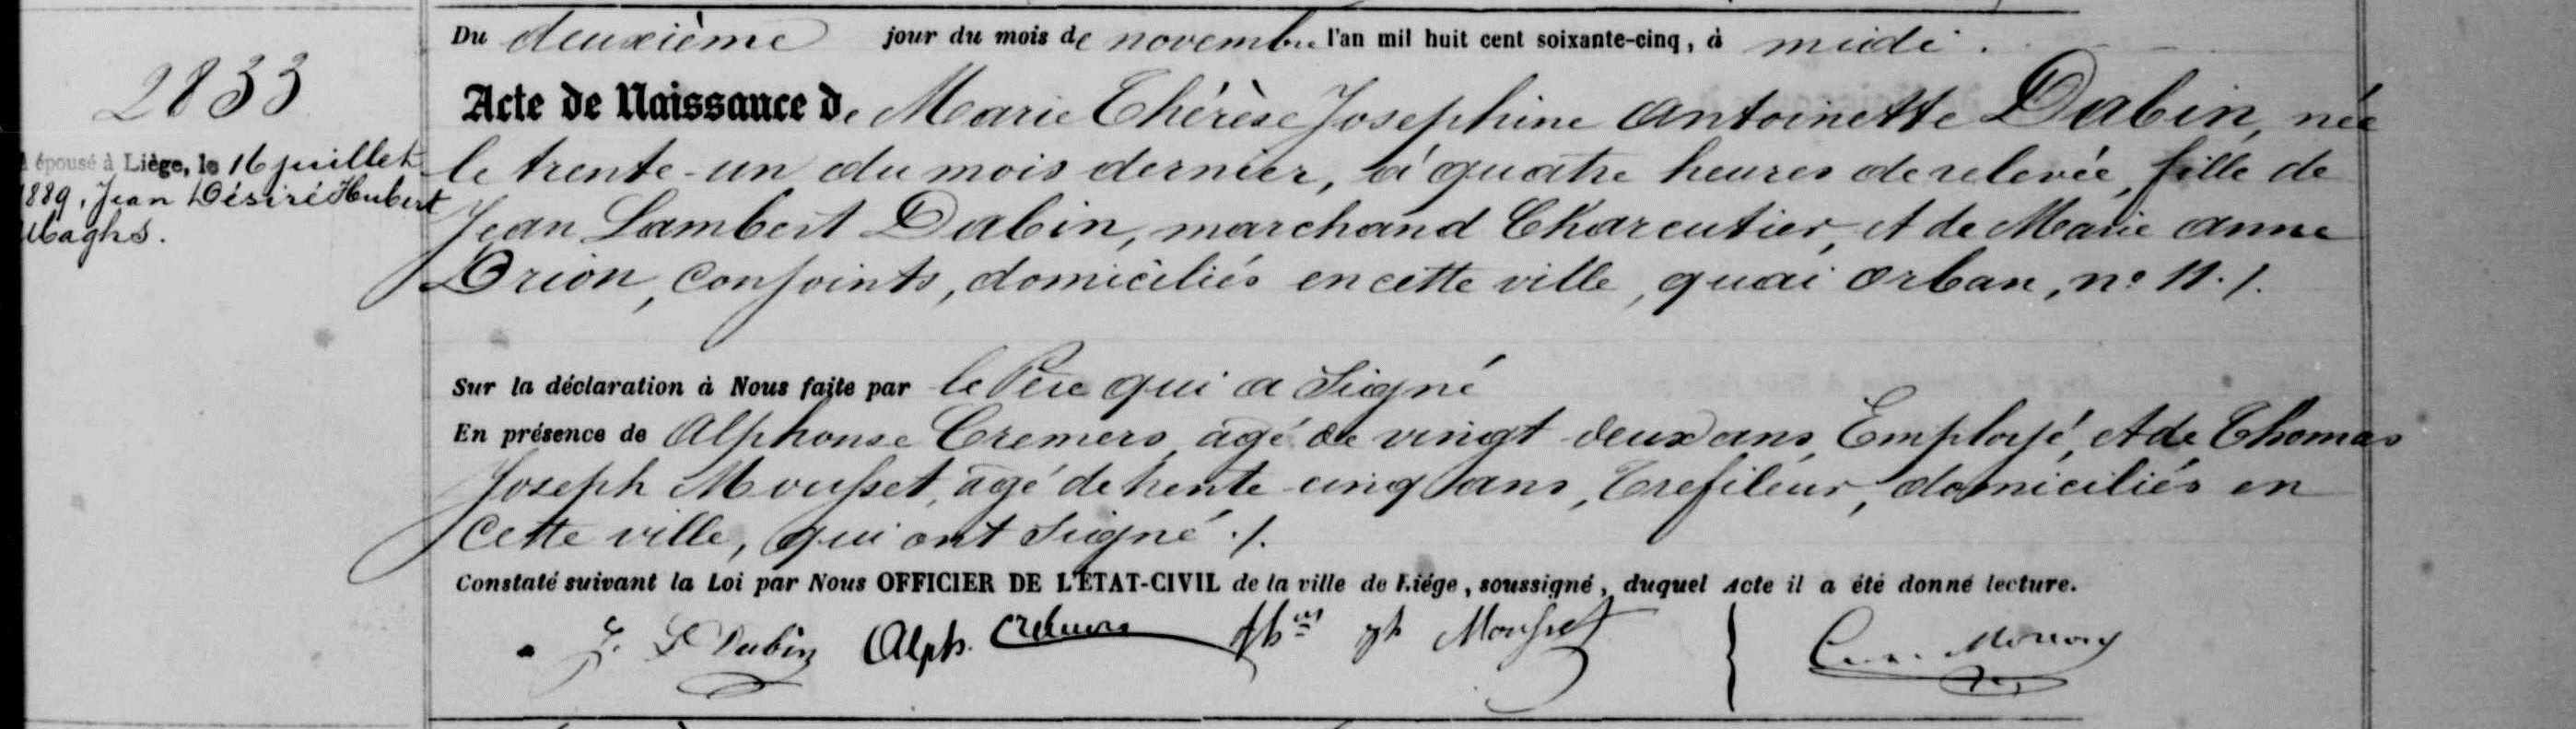 2833
A épousé à Liège, le 16 juillet
1889, Jean Désiré Hubert
Ubaghs.
Du deuxième jour du mois de novembre l'an mil huit cent soixante-cinq, à midi.
Acte de Naissance de Marie Thérèse Josephine Antoinette Dabin, née
le trente-un du mois dernier, à quatre heures de relevée, fille de
Jean Lambert Dabin, marchand Charcutier, et de Marie Anne
Orion, conjoints, domiciliés en cette ville, quai Orban, n° 11. /.
Sur la déclaration à Nous faite par le Père qui a Signé
En présence de Alphonse Cremers, âgé de vingt-deux ans, Employé, et de Thomas
Joseph Mousset, âgé de trente-cinq ans, Trefileur, domiciliés en
Cette ville, qui ont Signé ./.
Constaté suivant la Loi par Nous OFFICIER DE L'ÉTAT-CIVIL de la ville de Liége, soussigné, duquel Acte il a été donné lecture.
J. L Dabin Alph. Cremers Mousset